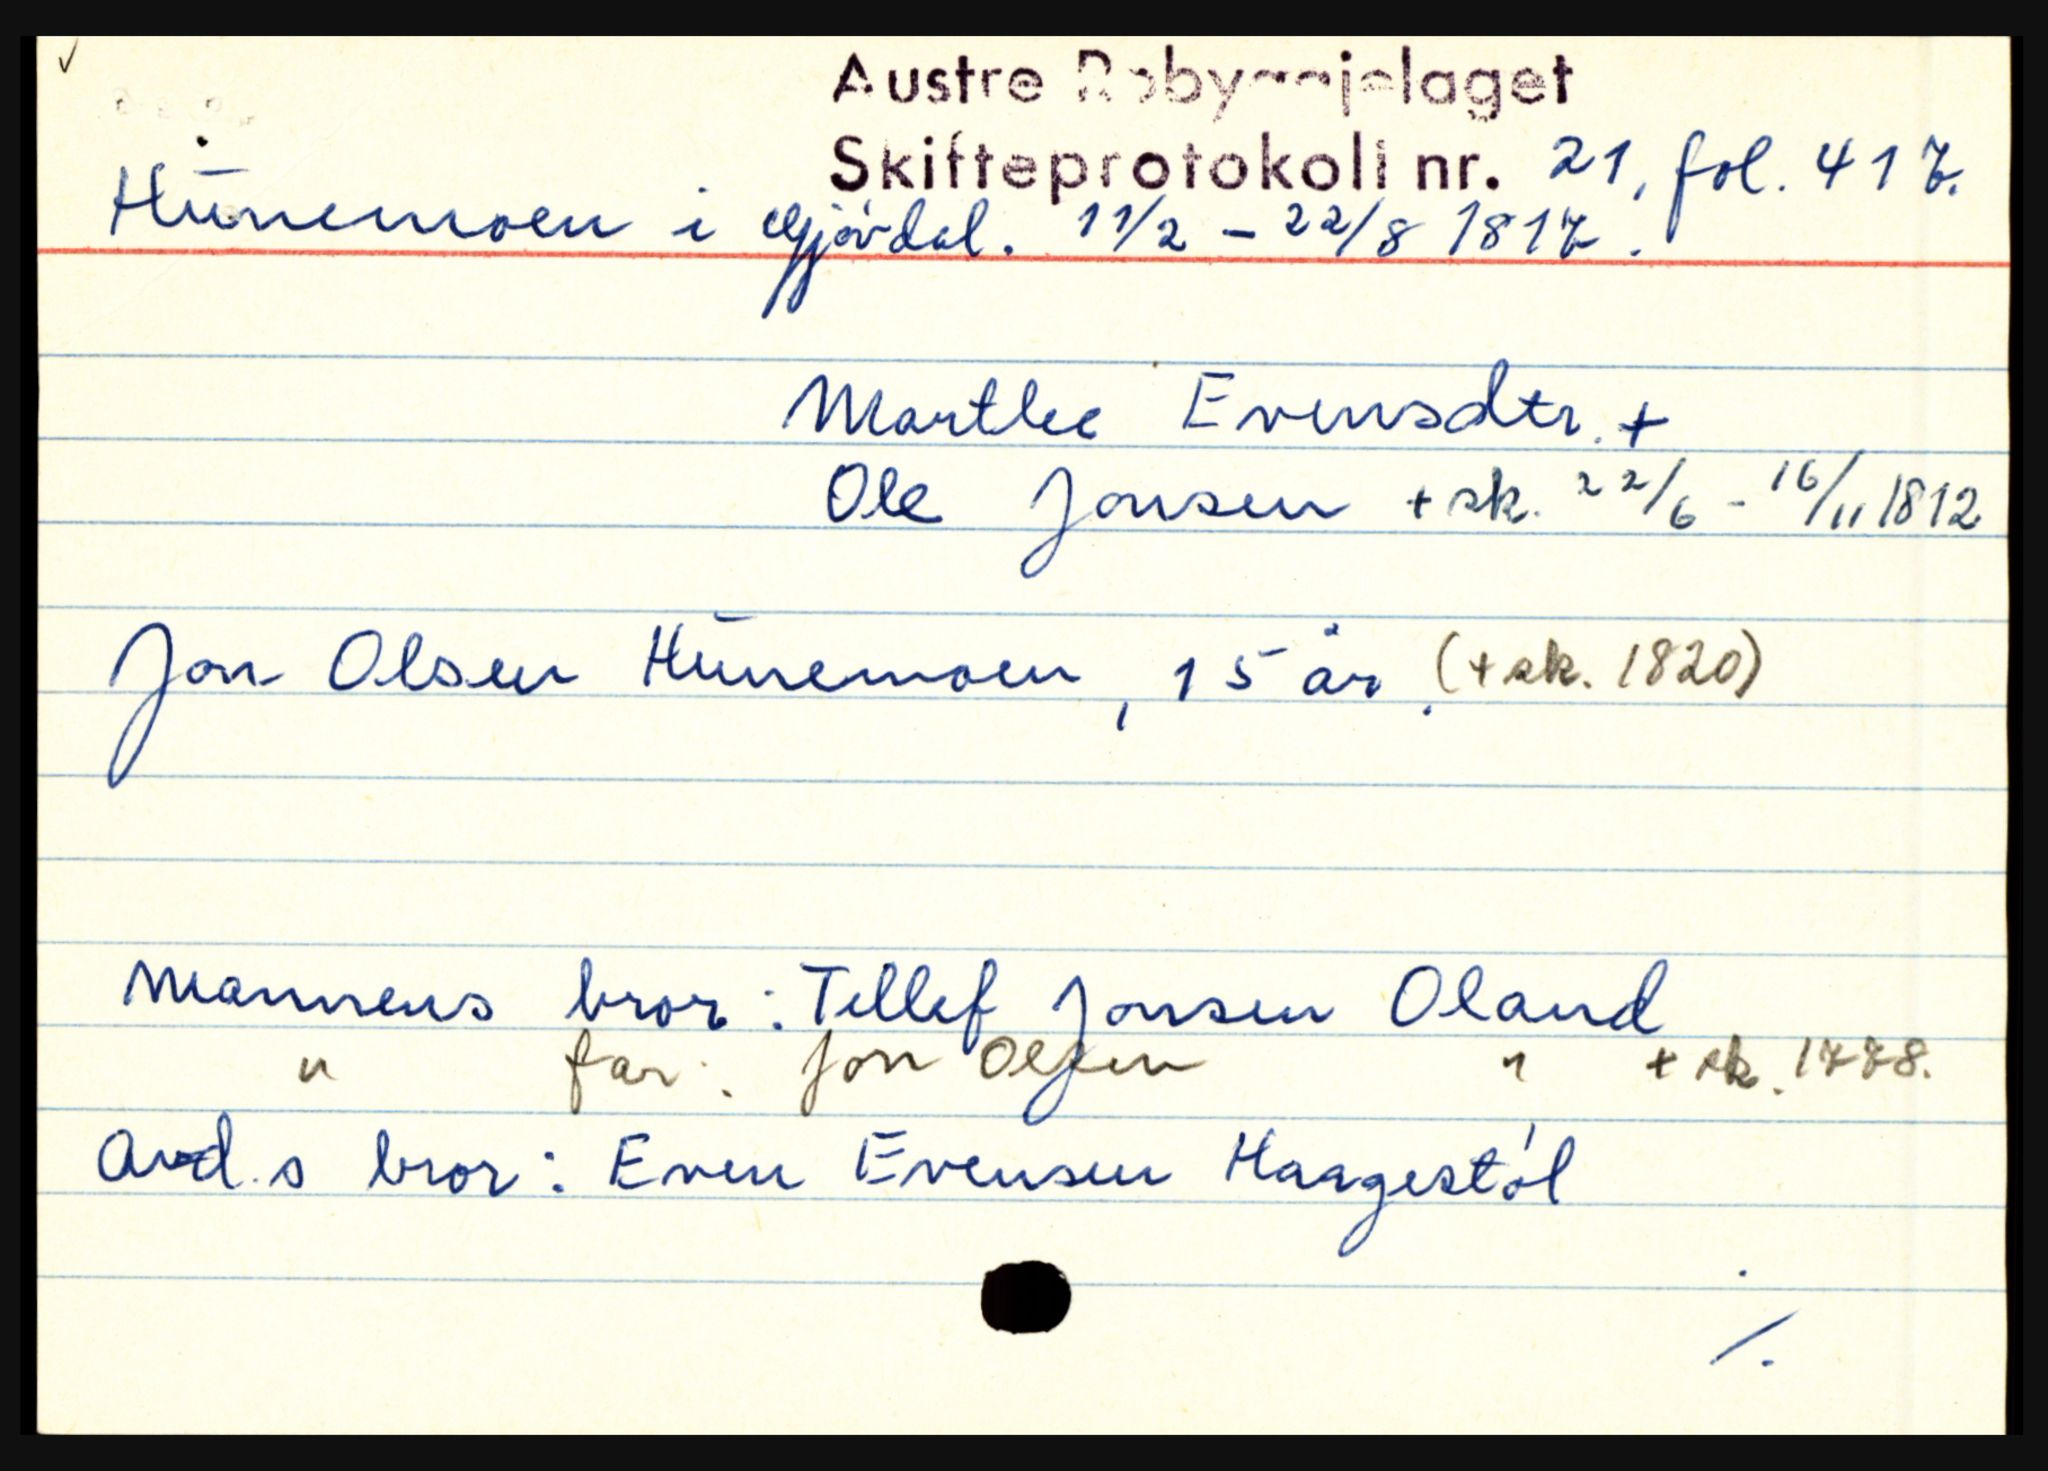 Austre Robyggjelaget
Skifteprotokoll nr. 21, fol. 417.
Hünemoen i Gjøvdal. 11/2 - 22/8 1817.
Marthe Evensdtr. +
Ole Jonsen + sk. 22/6 - 16/11 1812
Jon Olsen Hünemoen, 15 år. (+ sk. 1820)
Mannens bror: Tellef Jonsen Oland
" far: Jon Olsen " + sk. 1778.
Avd.s bror: Even Evensen Haagestøl
/.